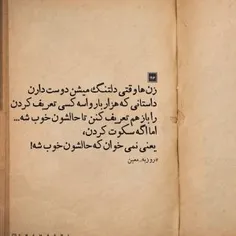 زن ها وقتی دلتنگ میشن دوست دارن
داستانی که هزار بار واسه کسی تعریف کردن
را باز هم تعریف کنن تا حالشون خوب شه...
اما اگه سکوت کردن،
یعنی نمی خوان که حالشون خوب شه!
روزبه_معین